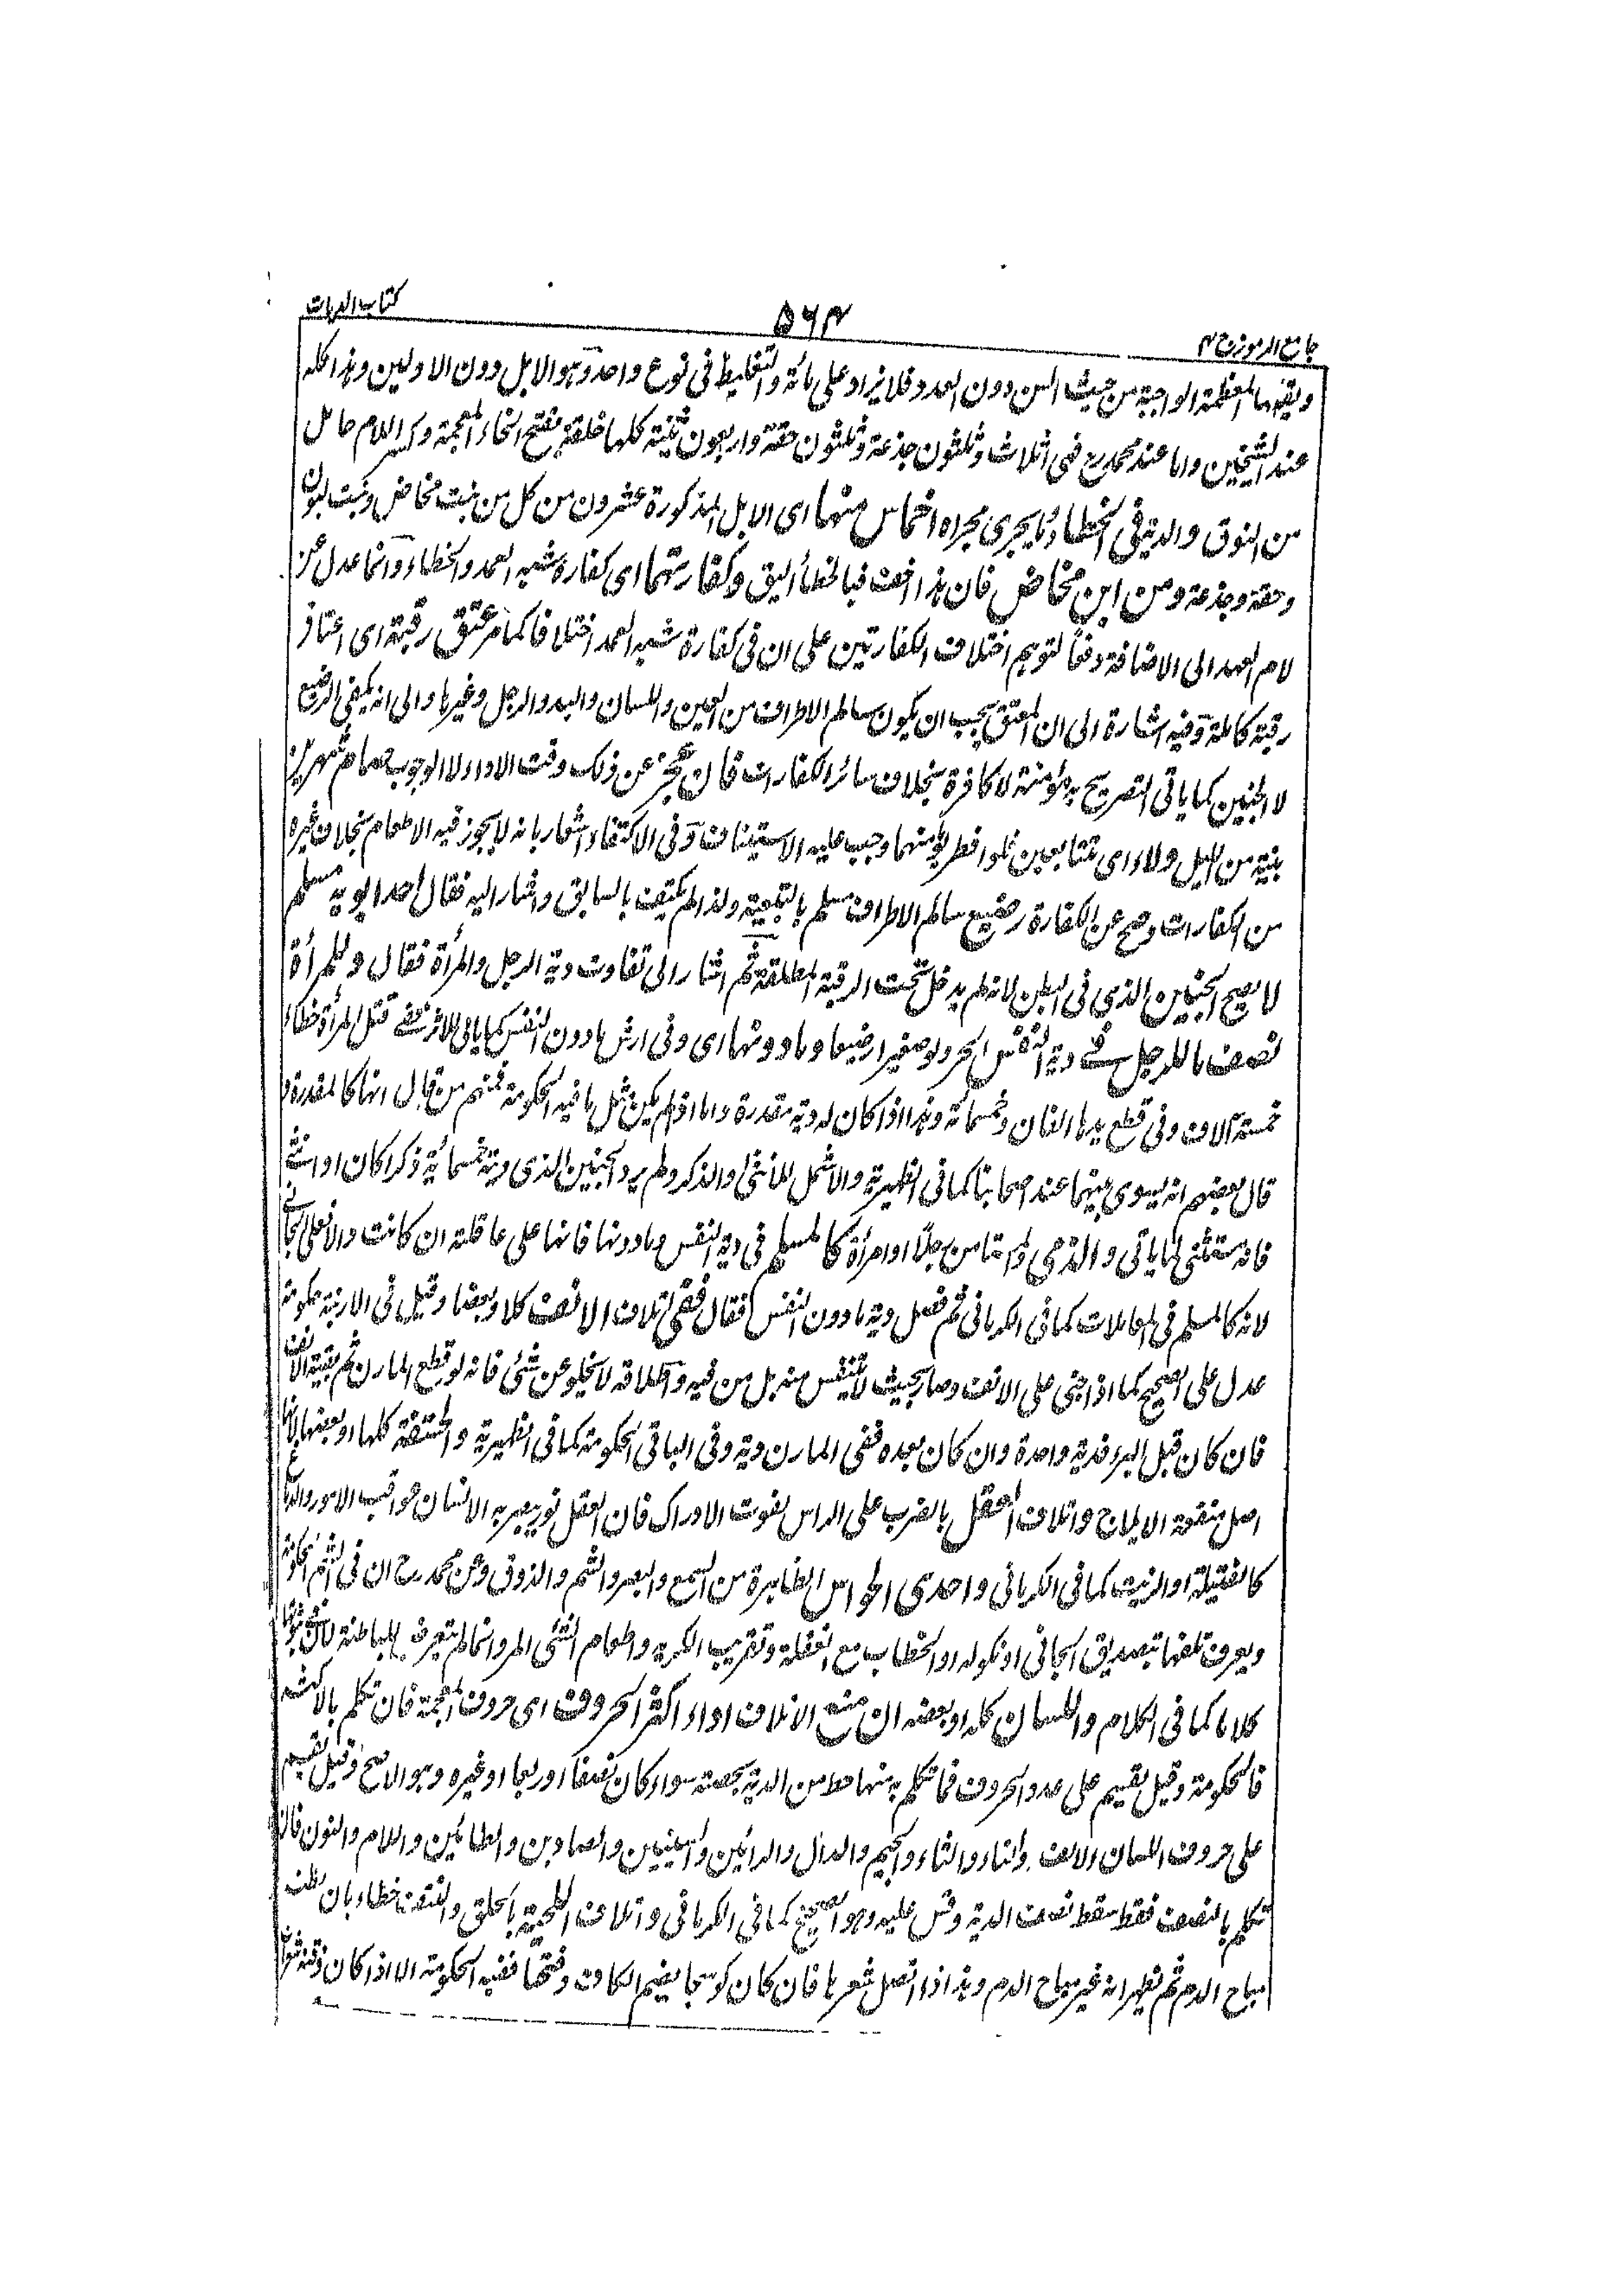 جامع الرموز ج ۴
۵۶۴
كتاب الديات
المغلظة الواجبة من حيث السن دون العدد فلا يزاد على مائة والتغليظ فى نوع واحد وهو الابل دون الاولين وهذا كله
عند الشيخين واما عند محمد رح فهى اثلاث وثلثون جذعة وثلثون حقة واربعون ثنية كلها خلفة بفتح الخاء المعجمة وكسر اللام حامل
من النوق والدية فى الخطاء وما يجرى مجراه اخماس منها اى الابل المذكورة عشرون من كل من بنت مخاض وبنت لبون
وحقة وجذعة ومن ابن مخاض فان هذا اخف فبالخطأ اليق وكفارتهما اى كفارة شبه العمد والخطاء وانما عدل عن
لام العهد الى الاضافة دفعا لتوهم اختلاف الكفارتين على ان فى كفارة شبه العمد اختلافا كما مر عتق رقبة اى اعتاق
رقبة كاملة وفيه اشارة الى ان المعتق يجب ان يكون سالم الاطراف من العين واللسان واليد والرجل وغيرها والى انه يكفى الرضيع
لا الجنين كما ياتى التصريح به مؤمنة لا كافرة بخلاف سائر الكفارات فان عجز عن ذلك وقت الاداء لا الوجوب صام شهرين
بنية من الليل ولاء اى متتابعين فلو افطر يوما منهما وجب عليه الاستيناف وفى الاكتفاء اشعار بانه لا يجوز فيه الاطعام بخلاف غيره
من الكفارات وصح عن الكفارة رضيع سالم الاطراف مسلم بالتبعية ولذا لم يكتف بالسابق واشار اليه فقال احد ابويه مسلم
لا يصح الجنين الذى فى البطن لانه لم يدخل تحت الرقبة المطلقة ثم اشار الى تفاوت دية الرجل والمرأة فقال وللمرأة
نصف ما للرجل فے دية النفس الحر ولو صغيرا رضيعا وما دونها اى وفى ارش ما دون النفس كما ياتى للاثر ففے قتل المرأة خطاء
خمسة آلاف وفى قطع يدها الفان وخمسمائة وهذا اذا كان له دية مقدرة واما اذا لم يكن مثل ما فيه الحكومة فمنهم من قال انها كالمقدرة و
قال بعضهم انه يسوى بينهما عند اصحابنا كما فى الظهيرية والاشمل للانثى والذكر ولم يرد الجنين الذى دية خمسمائة ذكرا كان او انثے
فانه مستثنى لما ياتى والذمى والمستامن رجلا او امرأة كالمسلم فى دية النفس وما دونها فانها على عاقلته ان كانت والا فعلى الجانے
لانه كالمسلم فى المعاملات كما فى الكرمانى ثم فصل دية ما دون النفس فقال ففى اتلاف الانف كلا وبعضا وقيل فى الارنبة حكومة
عدل على الصحيح كما اذا جنى على الانف وصار بحيث لا يتنفس منه بل من فيه واطلاقه لا يخلو عن شئ فانه لو قطع المارن ثم بقية الانف
فان كان قبل البرء فدية واحدة وان كان بعده ففى المارن دية وفى الباقى الحكومة كما فى الظهيرية والحشفة كلها او بعضها لانها
اصل منفعة الايلاج واتلاف العقل بالضرب على الراس لفوت الادراك فان العقل نور يبصر به الانسان عواقب الامور والدماغ
كالفتيلة او الزيت كما فى الكرمانى واحدى الحواس الظاهرة من السمع والبصر والشم والذوق وعن محمد رح ان فى الشم الحكومة
ويعرف تلفها بتصديق الجانى او نكوله او الخطاب مع الغفلة وتقريب الكريه واطعام الشئ المر وانما لم يتعرض للباطنة لان فى ثبوتها
كلاما كما فى الكلام واللسان كله او بعضه ان منع الاتلاف اداء اكثر الحروف اى حروف المعجمة فان تكلم بالاكثر
فالحكومة وقيل يقسم على عدد الحروف فما تكلم به منها حط من الدية بحصته سواء كان نصفا او ربعا او غيره وهو الاصح وقيل تقسيم
على حروف اللسان الالف والتاء والثاء والجيم والدال والرائين والسينين والصادين والطائين واللام والنون فان
تكلم بالنصف فقط سقط نصف الدية وقس عليه وهو الصحيح كما فى الكرمانى واتلاف اللحية بالحلق والنتف خطاء بان ظنه
مباح الدم ثم ظهر انه غير مباح الدم وهذا اذا اتصل شعرها فان كان كوسجا بضم الكاف وفتحها ففيه الحكومة الا اذا كان